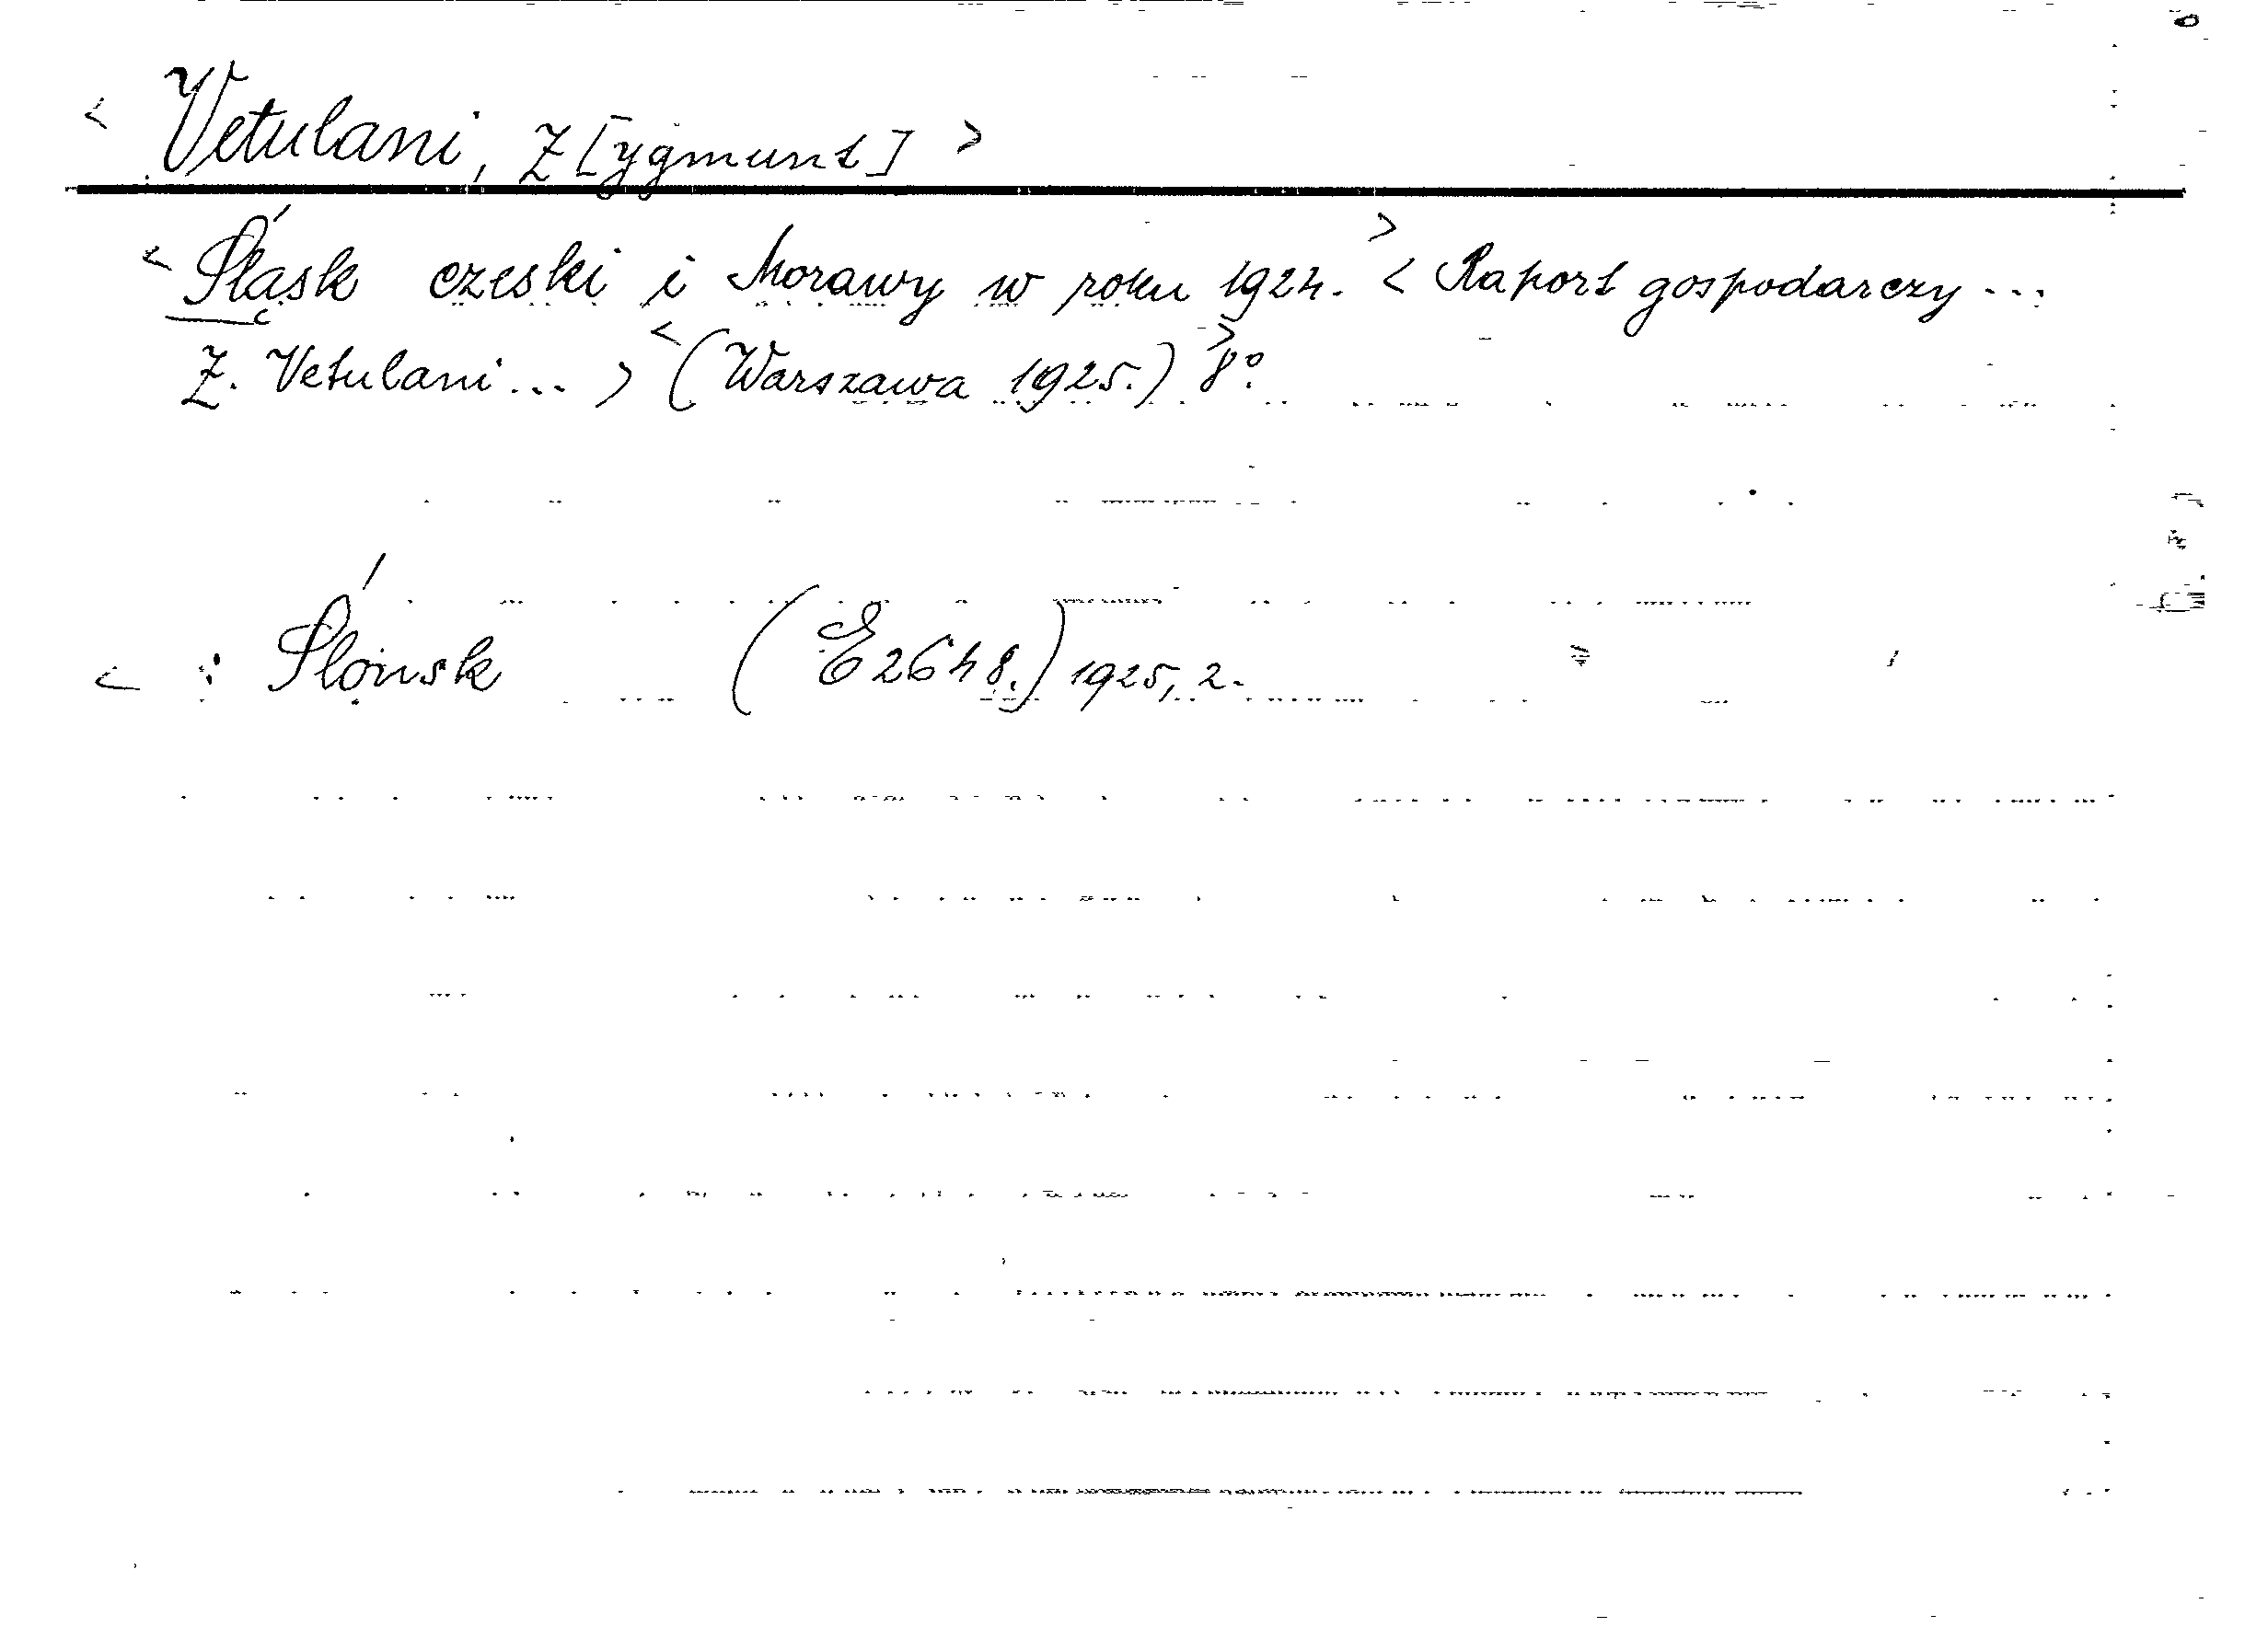 < Vetulani, Z[ygmunt] >
< Śląsk czeski i Morawy w roku 1924. > < Raport gospodarczy ...
Z. Vetulani ... > < (Warszawa 1925.) > 8°.
< : Ślónsk (E 2648.) 1925, 2.